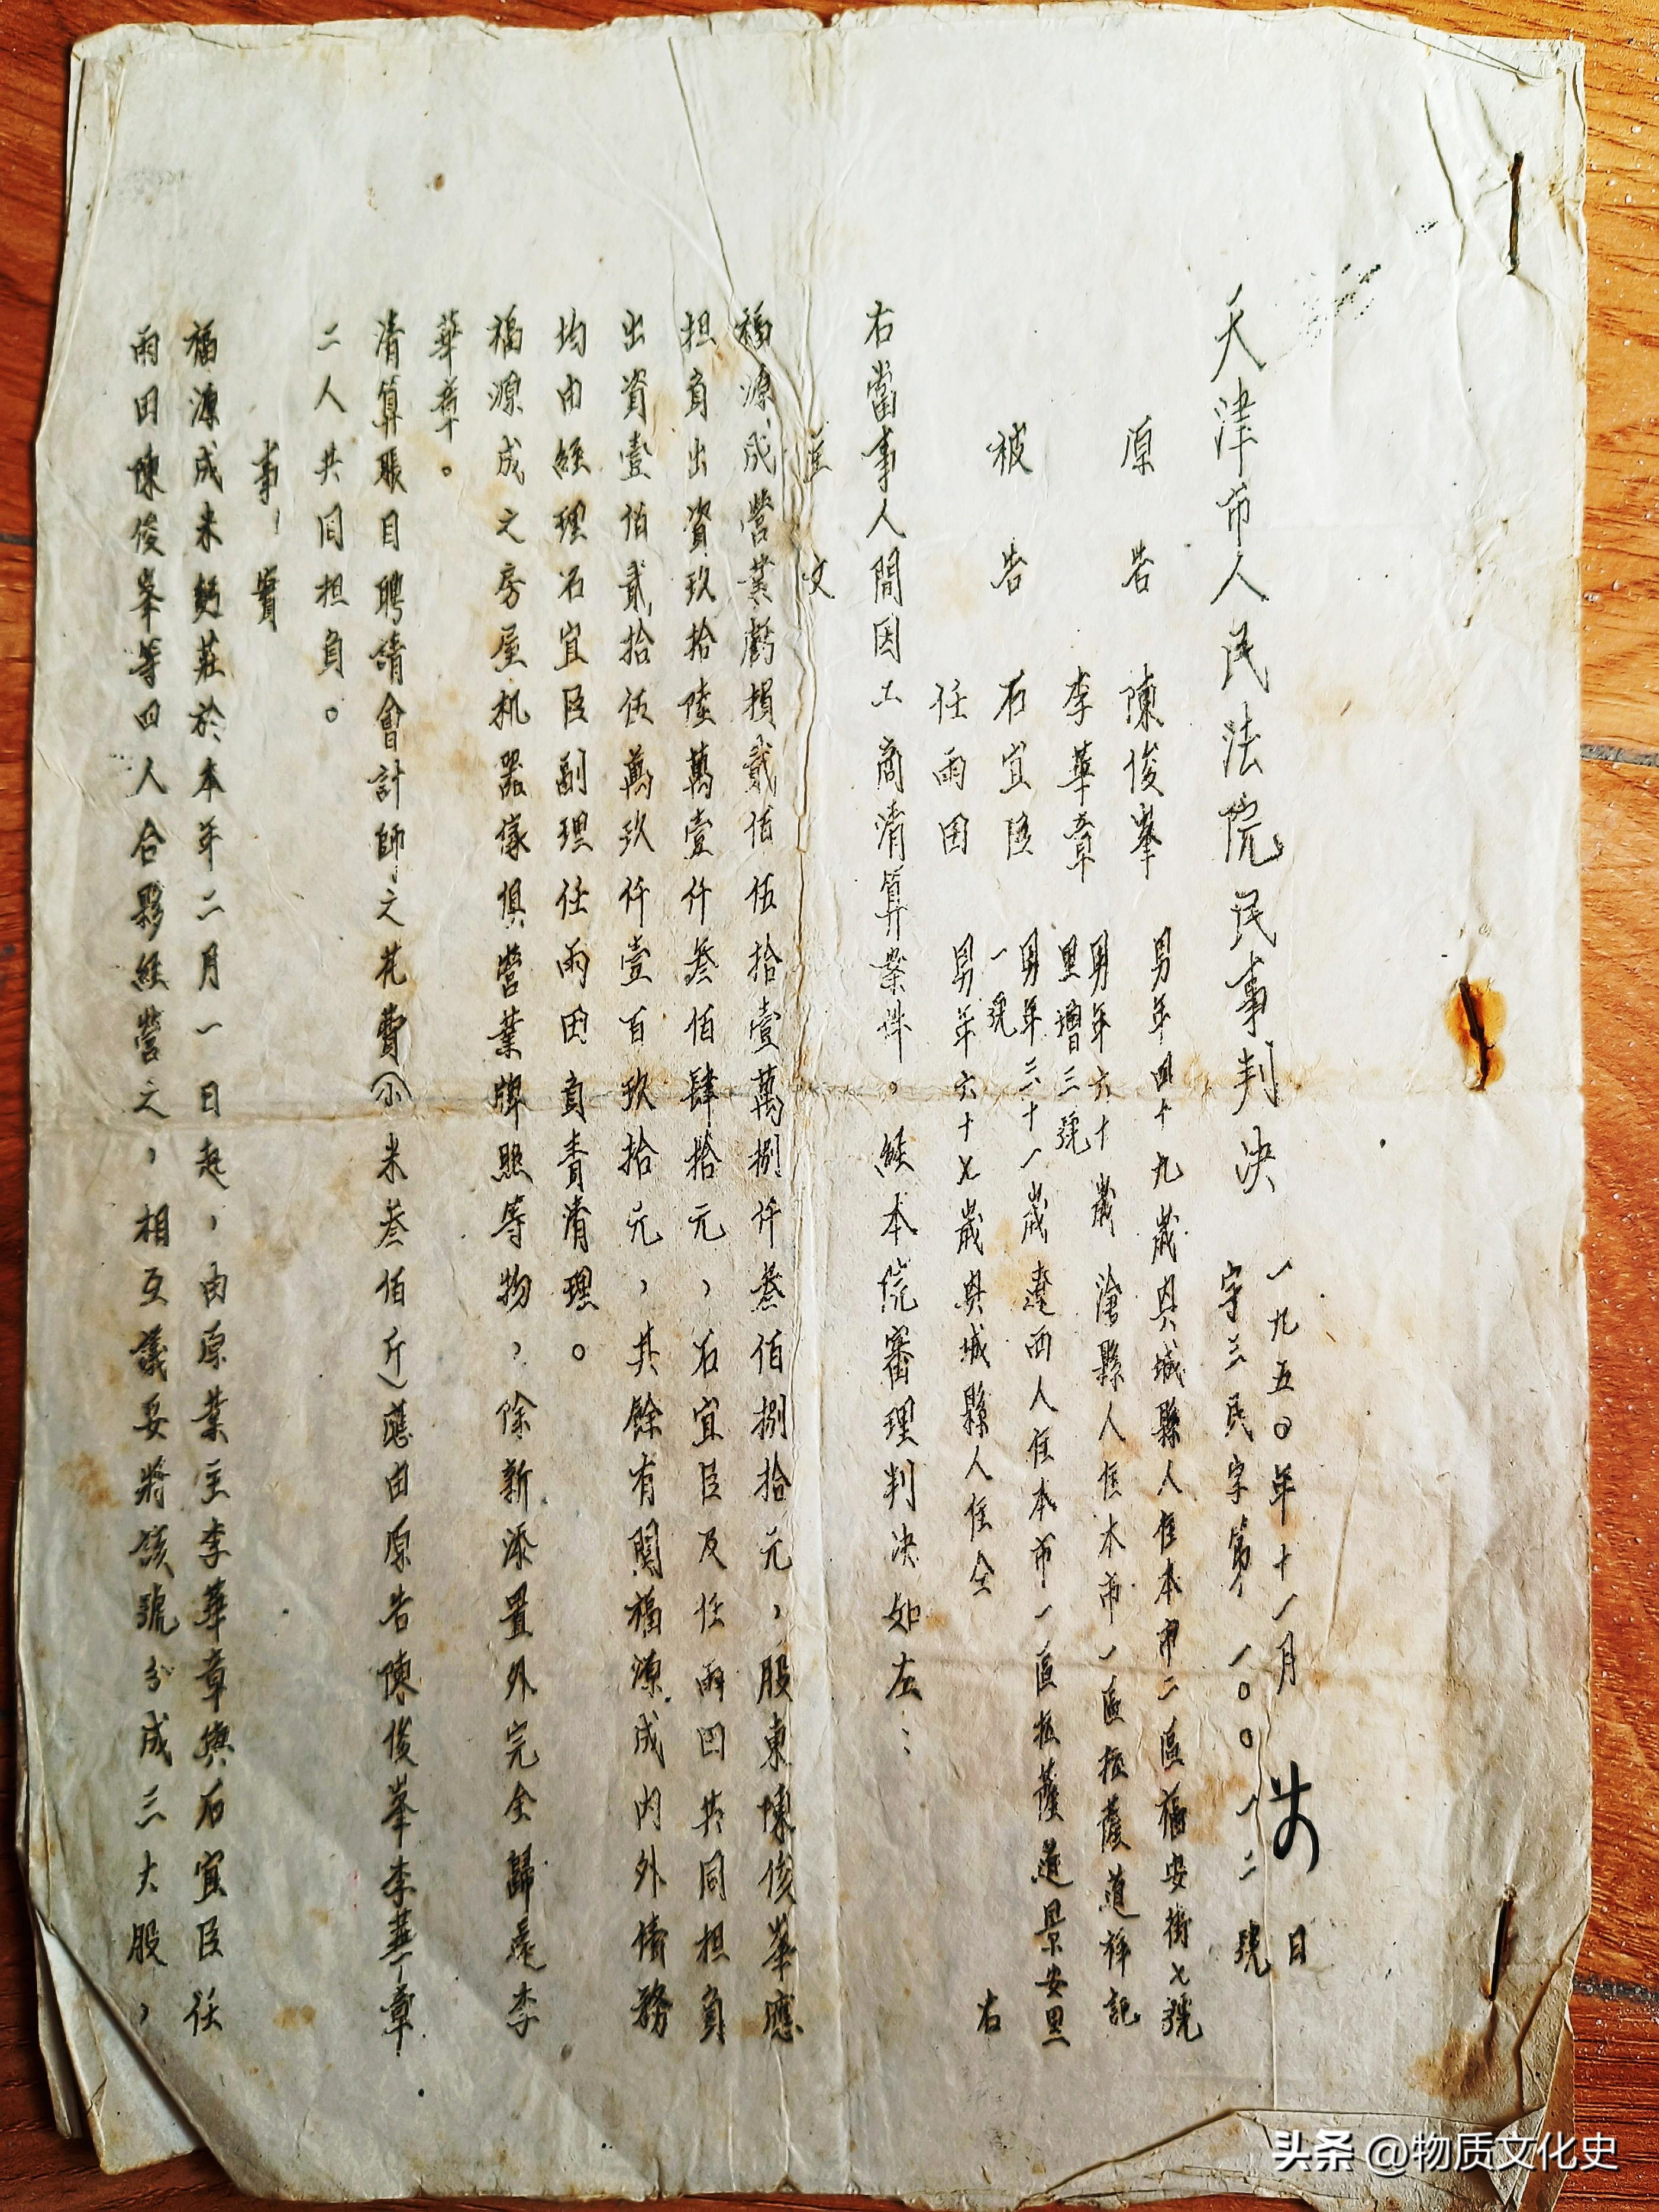 天津市人民法院民事判決
一九五〇年十一月 日
字三民字第一〇〇一二號
原告 陳俊峯 男年四十九歲 縣人住本市二區福安街七號
李華章 男年六十歲滄縣人住本市一區 道祥記
里增三號
被告 石宜臣 男年三十一歲遼西人住本市一區 道景安里
一號
任雨田 男年六十七歲 縣人住仝右
右當事人間因工商清算案件。經本院審理判決如左：
主文
福源成營業虧損貳佰伍拾壹萬捌仟叁佰捌拾元，股東陳俊峯應
担負出資玖拾陸萬壹仟叁佰肆拾元，石宜臣及任雨田共同担負
出資壹佰貳拾伍萬玖仟壹百玖拾元，其餘有關福源成內外債務
均由經理石宜臣副理任雨田負責清理。
福源成之房屋机器傢俱營業牌照等物，除新添置外完全歸還李
華章。
清算賬目聘請會計師之花費(小米叁佰斤)應由原告陳俊峯李華章
二人共同担負。
事實
福源成米麵莊於本年二月一日起，由原業主李華章與石宜臣任
雨田陳俊峯等四人合夥經營之，相互議妥將該號分成三大股，
头条 @物质文化史